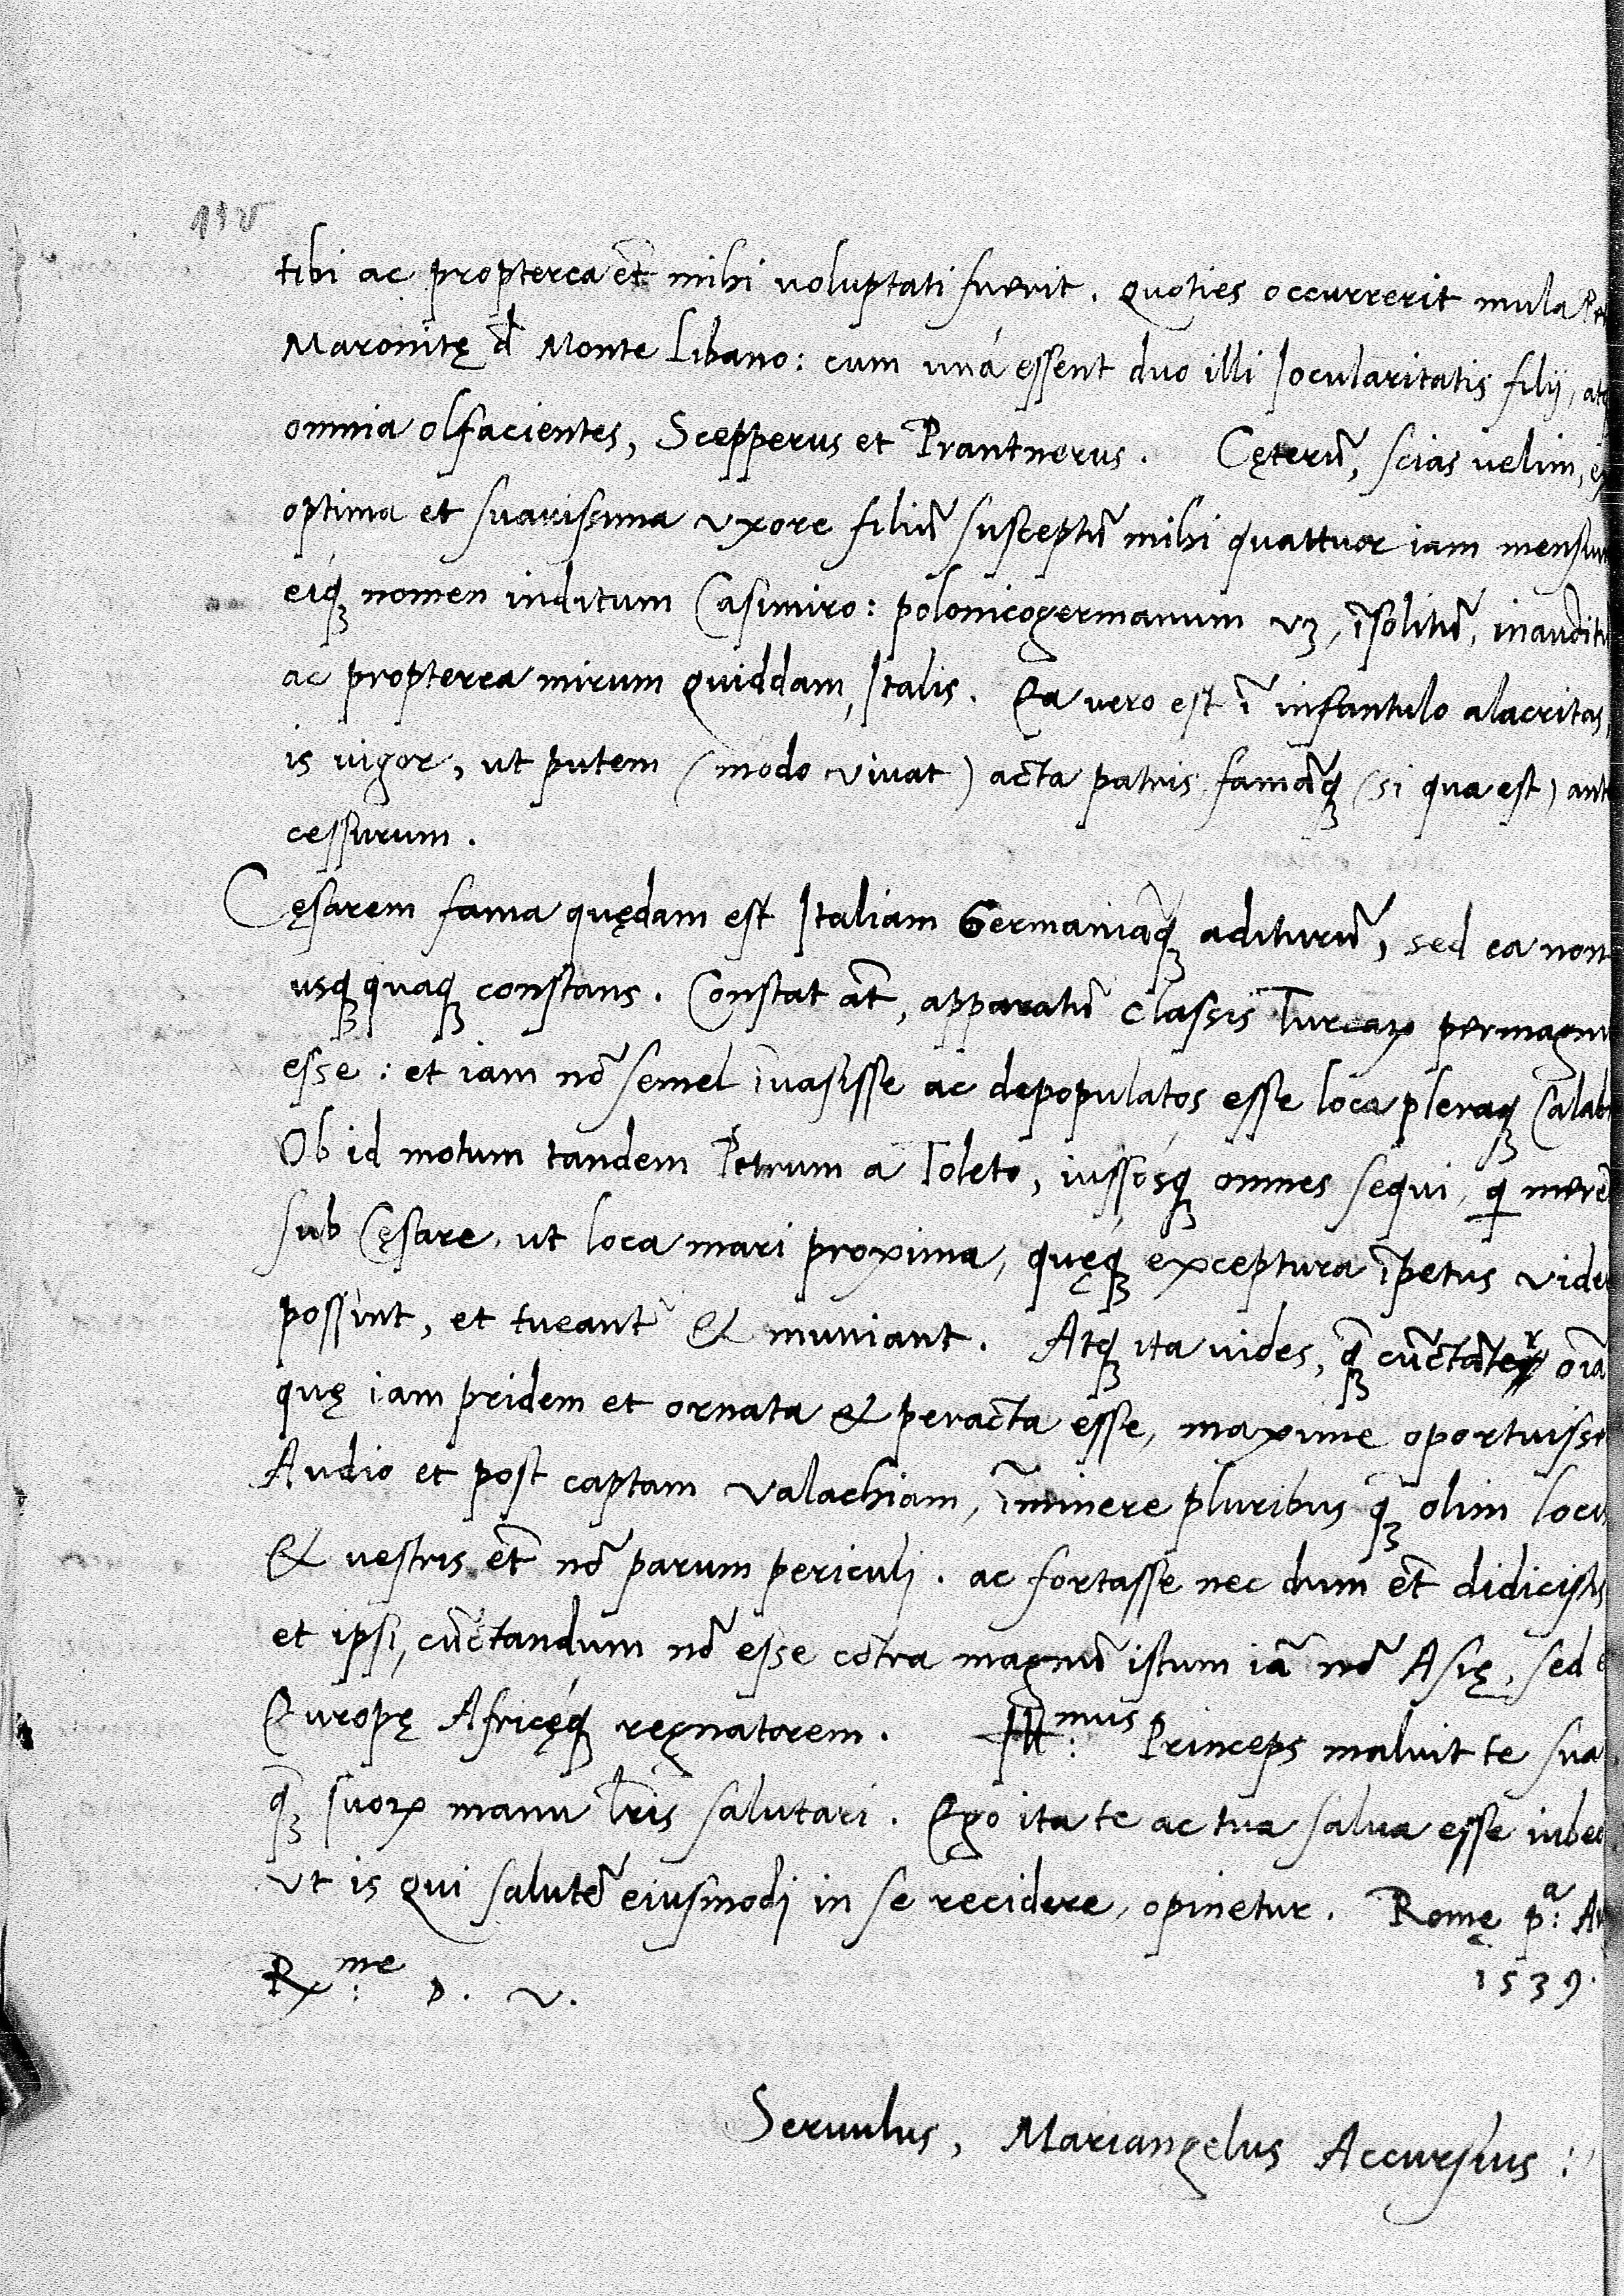 tibi ac propterea et̃ mihi voluptati fuerit. Quoties occurrerit mula
Maronitę đ Monte Libano: cum unà essent duo illi Iocularitatis filij,
omnia olfacientes, Scepperus et Prantnerus. Cęterũ, scias velim,
optima et suavissima vxore filiũ susceptũ mihi quattuor iam mensium
eiq; nomen inditum Casimiro: polonicogermanum vz, ĩsolitũ, inauditu
ac propterea mirum quiddam, Italis. Ea vero est ĩ infantulo alacritas,
is vigor, ut putem (modo vivat) acta patris, famãq; (si qua est) ante
cessurum.
Cęsarem fama quędam est Italiam Germaniãq; aditurũ, sed ea non
usq;quaq; constans. Constat aũt, apparatũ classis Turcaꝝ permagnu
esse: et iam nõ semel ĩvasisse ac depopulatos esse loca pleraq; Calab
Ob id motum tandem Petrum a Toleto, iussósq; omnes sequi, q̃ merẽ
sub Cęsare, ut loca mari proxima, quęq; exceptura ĩpetus vide
possint, et tueant̃ & muniant. Atq; ita vides, q̃; cũctãter oĩa
quę iam pridem et ornata & peracta esse, maxime oportuisse
Audio et post captam Valachiam, ĩminere pluribus q̃; olim locis
& vestris et̃ nõ parum periculj. ac fortasse nec dum et̃ didicistis
et ipsi, cũctandum nõ esse cõtra magnũ istum iã nõ Asię, sed
Europę Africęq; regnatorem. Ill:mus Princeps maluit te sua
q̃; suoꝝ manu lr̃is salutari. Ego ita te ac tua salua esse iubeo
Vt is qui salutẽ eiusmodj in se recidere, opinetur. Romę p:a
R:me D. V. 1539.
Seruulus, Mariangelus Accursius: